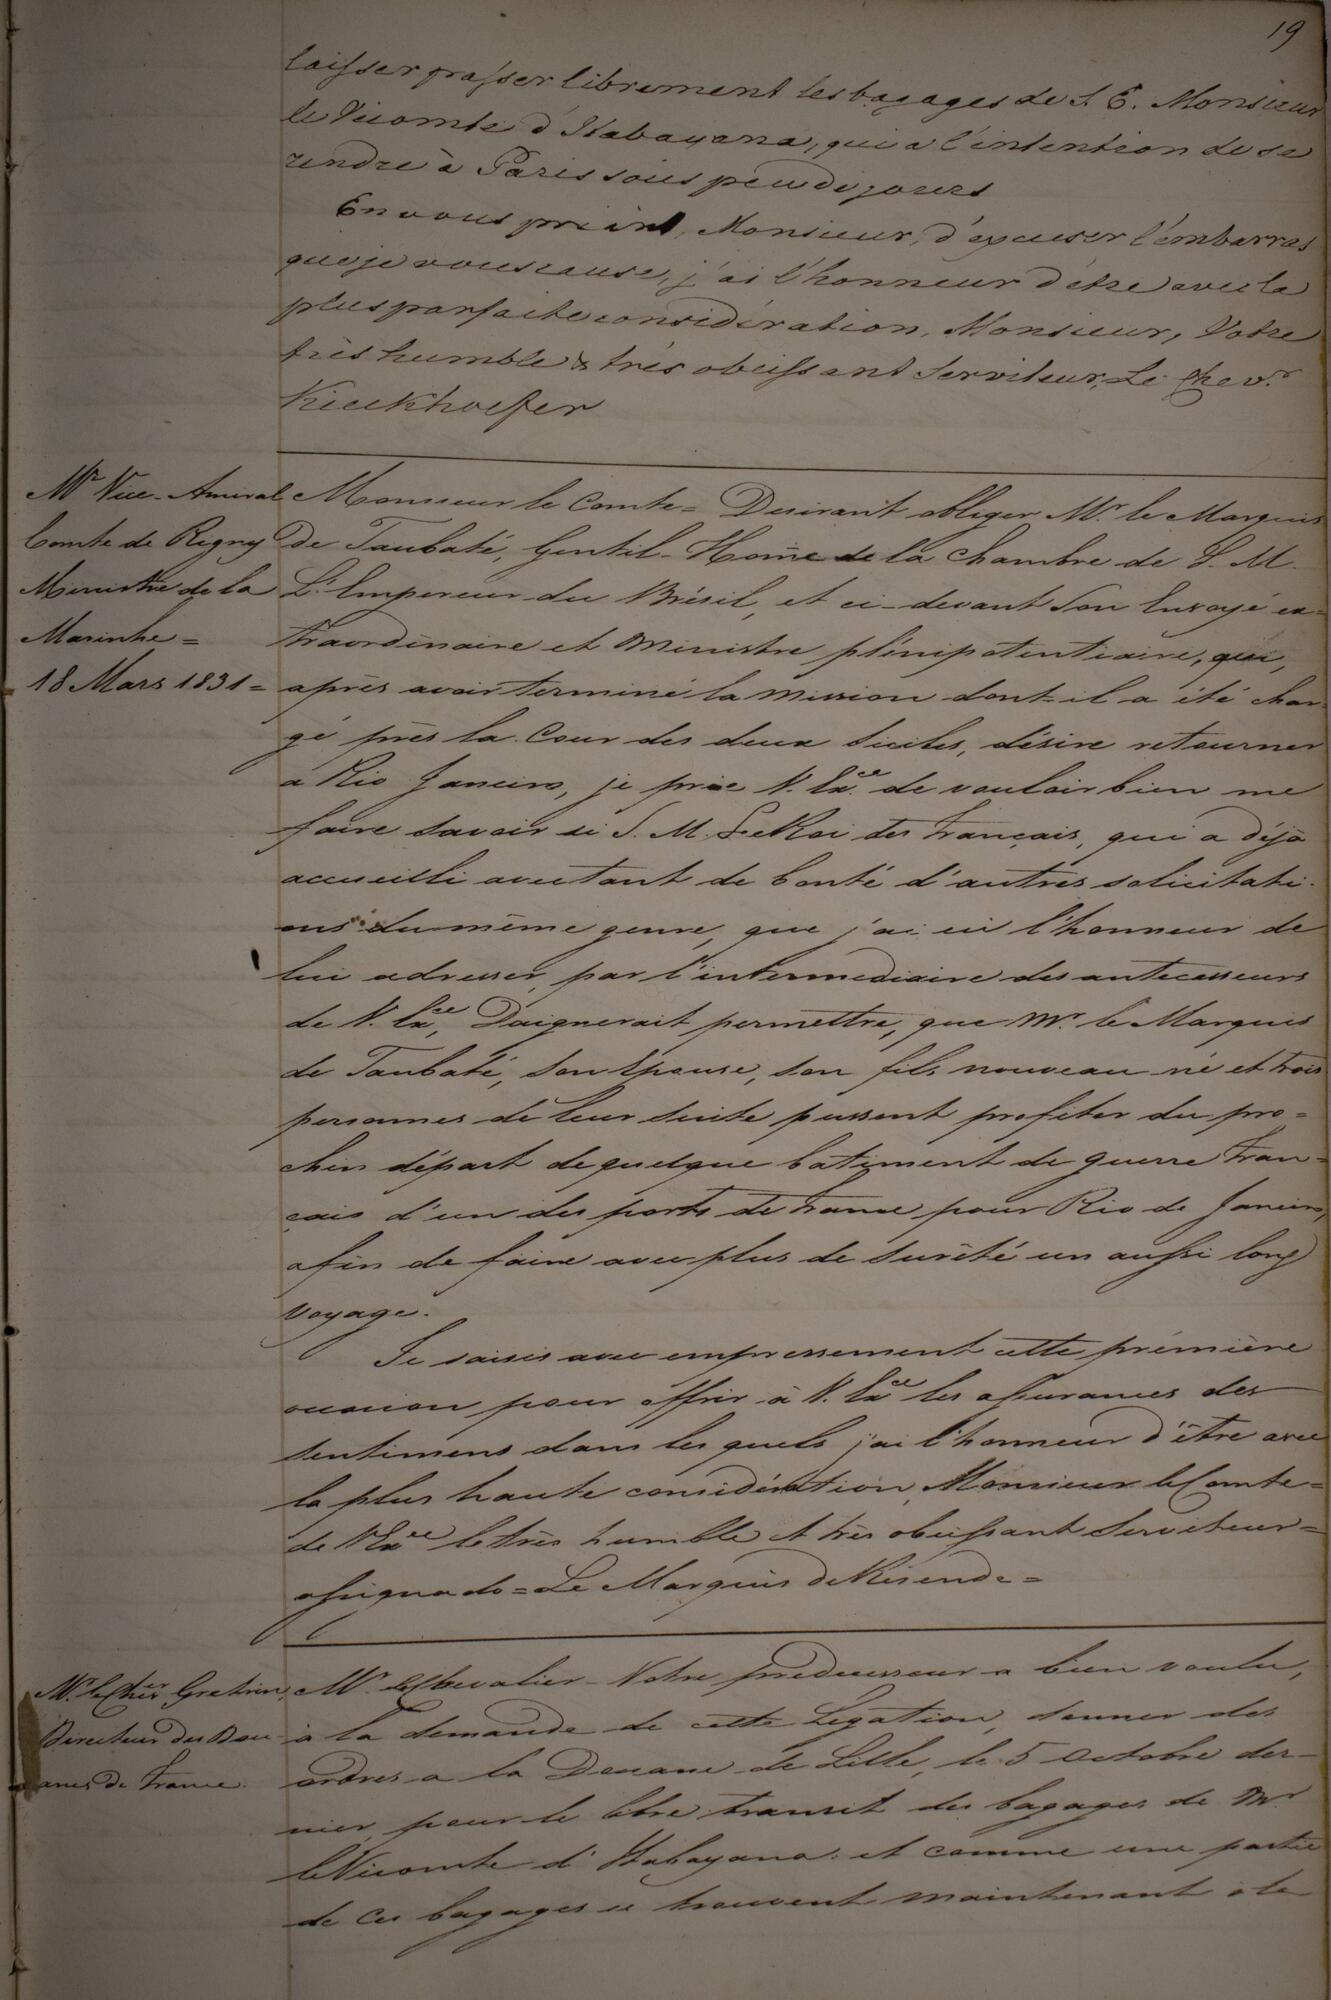 19
laisser passer librement les bagages de S. E. Monsieur
le Vicomte d'Itabayana, qui a l'intention de se
rendre à Paris sous peu de jours
En vous priant, Monsieur, d'excuser l'embarras
que je vous cause, j'ai l'honneur d'être avec la
plus parfaite considération, Monsieur, Votre
très humble & très obeissant Serviteur, Le Chev.r
Kieckhoefer
Mr Vice-Amiral
Comte de Rigny
Ministre de la
Marinhe =
18 Mars 1831 =
Monsieur le Comte = Desirant obliger Mr. le Marquis
de Taubaté, Gentil-Home de la Chambre de S. M.
L'Empereur du Brésil, et ci-devant Son Envoyé ex-
traordinaire et Ministre plénipotentiaire, qui,
après avoir terminé la mission dont-il a été char-
gé près la Cour des deux Siciles, désire retourner
a Rio Janeiro, je prie V. Exce. de vouloir bien me
faire savoir si S. M. Le Roi des Français, qui a déja
accueilli avec tant de bonté d'autres solicitati-
ons du même genre, que j'ai eu l'honneur de
lui adresser, par l'intermediaire des antecesseurs
de V. Exce, Daignerait permettre, que Mr. le Marquis
de Taubaté, son Epouse, son fils nouveau né et trois
personnes de leur suite pussent profiter du pro=
chin départ de quelque batiment de guerre Fran=
çais d'un des ports de France pour Rio de Janeiro,
afin de faire avec plus de sureté un aussi long
voyage.
Je saisis avec empressement cette première
occasion pour offrir à V. Exce les assurances des
sentimens dans les quels j'ai l'honneur d'être avec
la plus haute considération, Monsieur le Comte=
de V Exce le très humble et très obeissant Serviteur=
assignado = Le Marquis de Résende =
Mr. le Cher
Directeur des Dou-
anes de France.
Mr. le Chevalier - Votre predecesseur a bien voulu,
à la demande de cette Légation, donner des
ordres a la Douane de Lille, le 5 Octobre der-
nier, pour le libre transit des bagages de Mr
le Vicomte d'Itabayana: et comme une partie
de ces bagages se trouvent maintenant à la